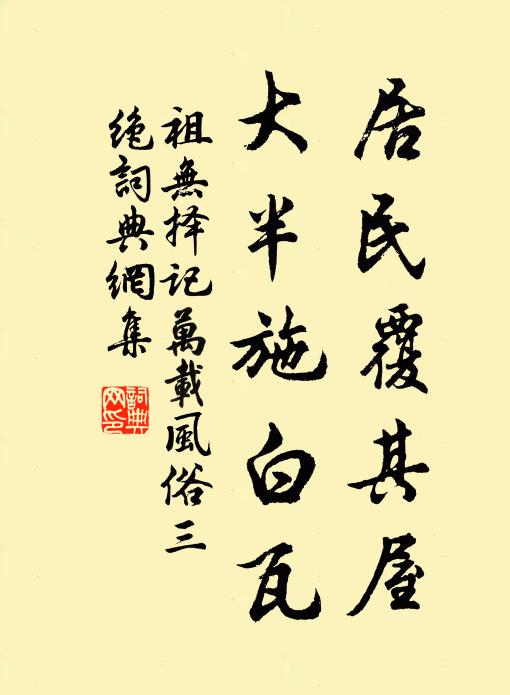 居民覆其屋
大半施白瓦
祖無择记萬載風俗三
绝詞典網集
詞典
网印